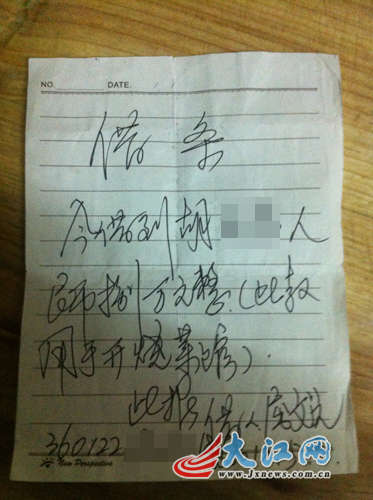 NO. DATE. / /
借条
今借到胡 人
民币捌万元整.(此款
用于开烧菜馆).
此据 借
360122
New Perspective
大江网
www.jxnews.com.cn